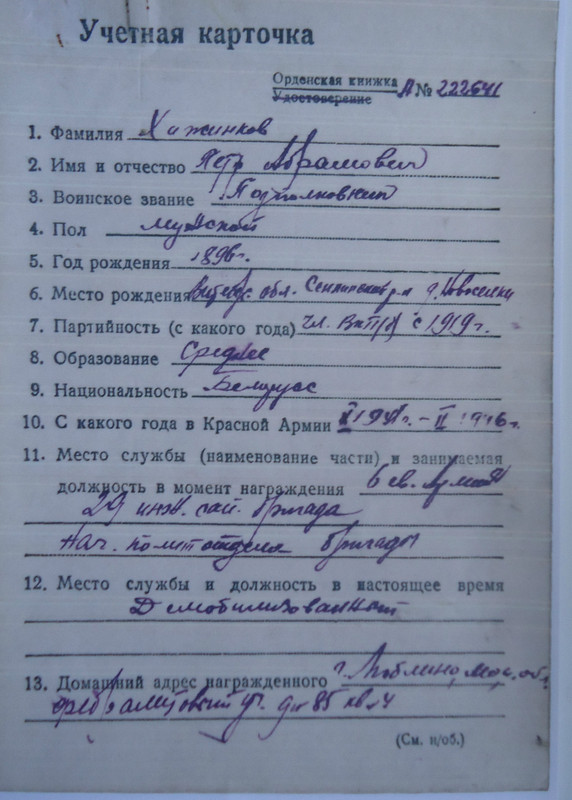 Учетная карточка
Орденская книжка А № 222641
Удостоверение
1. Фамилия Хижинков
2. Имя и отчество Петр Абрамович
3. Воинское звание Подполковник
4. Пол мужской
5. Год рождения 1896г.
6. Место рождения Витебс. обл. Сеннинский р-н д. Новоселки
7. Партийность (с какого года) чл. ВКП(б) с 1919г.
8. Образование Среднее
9. Национальность Белорус
10. С какого года в Красной Армии 1941г. – II 1946г.
11. Место службы (наименование части) и занимаемая
должность в момент награждения 6 гв. Армия
29 инж. сап. бригада
Нач. политотдела бригады
12. Место службы и должность в настоящее время
Демобилизованный
13. Домашний адрес награжденного г. Люблино, Мос. обл.
ул. д 85 кв 4
(См. н/об.)